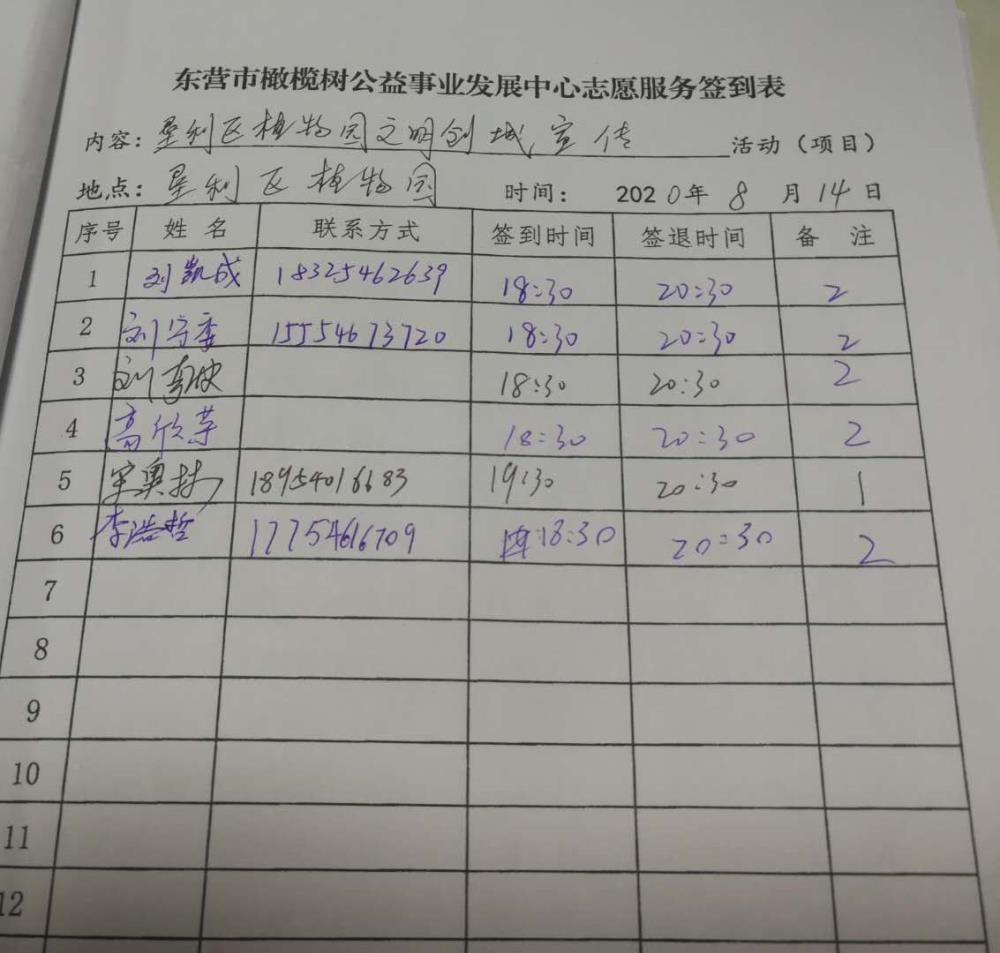 东营市橄榄树公益事业发展中心志愿服务签到表
内容：垦利区植物园文明创城宣传 活动（项目）
地点：垦利区植物园 时间： 2020年 8 月 14 日
序号 姓名 联系方式 签到时间 签退时间 备注
1 刘凯成 18325462639 18:30 20:30 2
2 刘守委 15554673720 18:30 20:30 2
3 刘 18:30 20:30 2
4 高欣 18:30 20:30 2
5 奥林 18954016683 19:30 20:30 1
6 李浩哲 17754616709 18:30 20:30 2
7
8
9
10
11
12